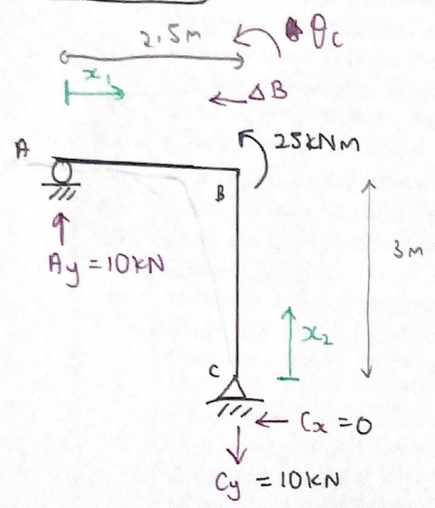 2.5m
θc
x₁
ΔB
A
25kNm
B
Ay = 10kN
3m
x₂
C
Cx = 0
Cy = 10kN